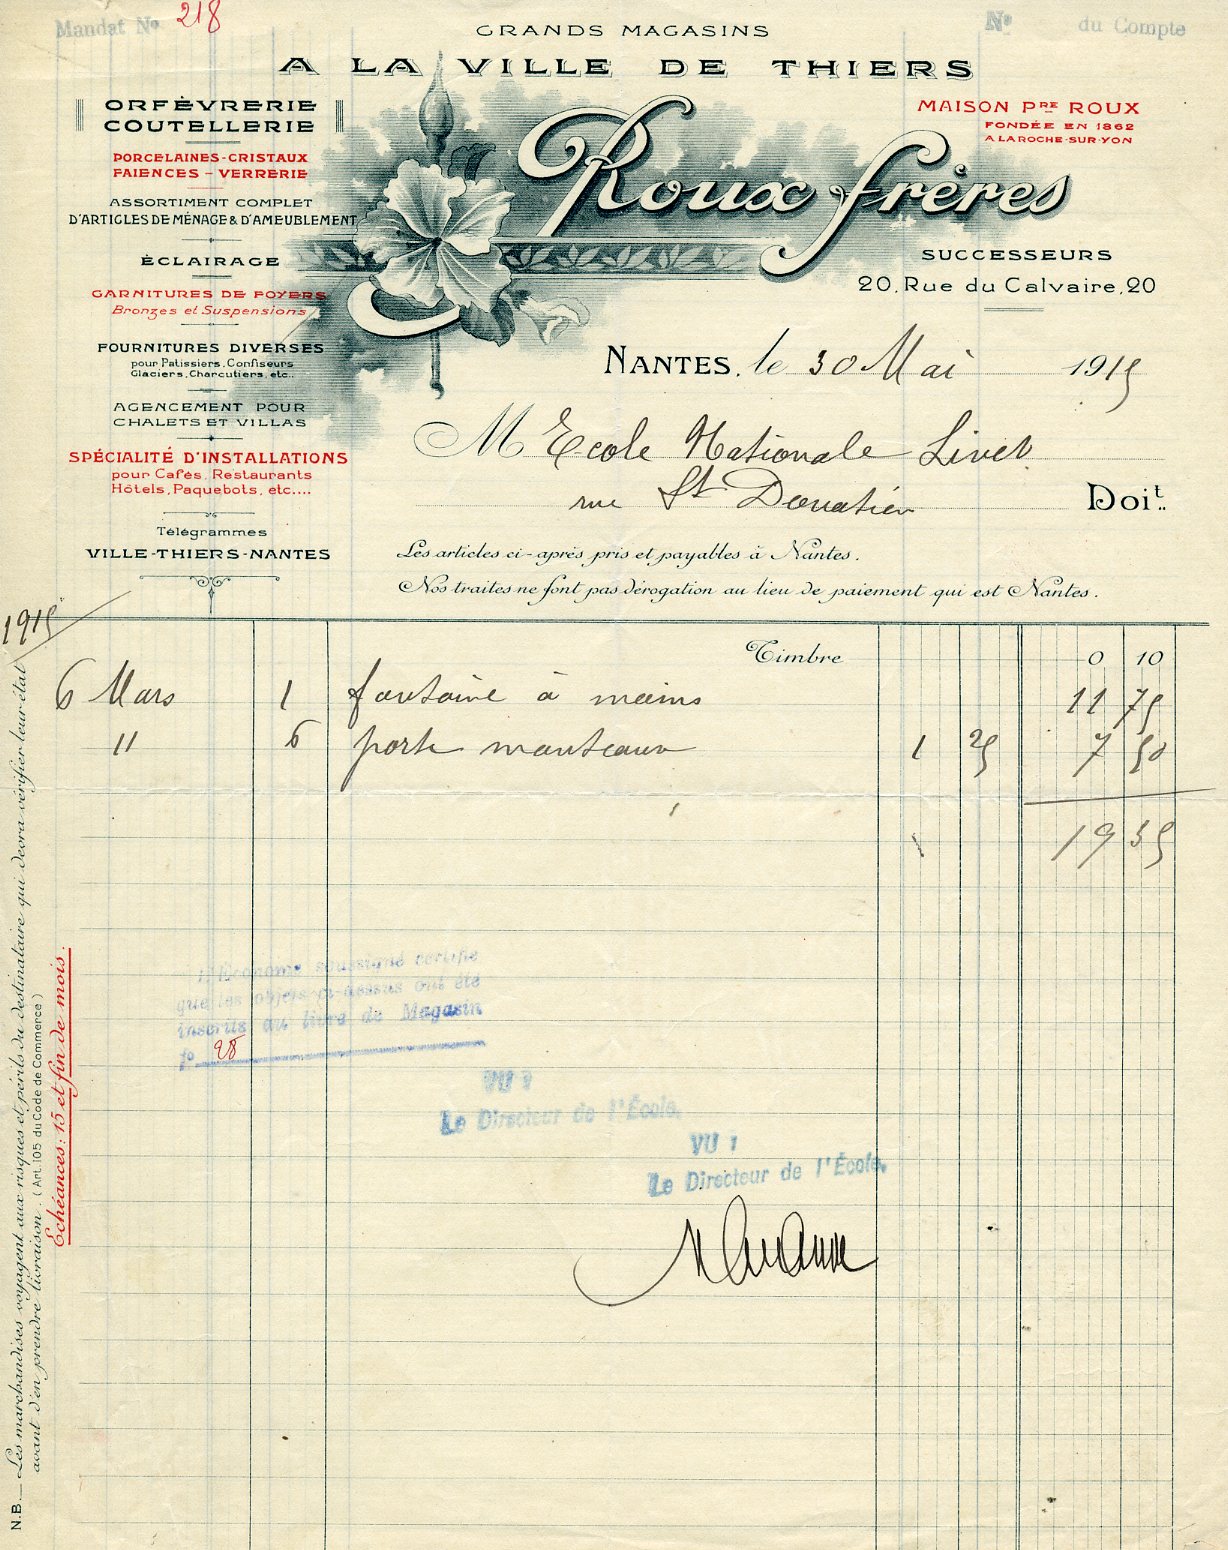 Mandat No 218
No du Compte
GRANDS MAGASINS
A LA VILLE DE THIERS
ORFÈVRERIE
COUTELLERIE
PORCELAINES-CRISTAUX
FAIENCES - VERRERIE
ASSORTIMENT COMPLET
D'ARTICLES DE MÉNAGE & D'AMEUBLEMENT
ÉCLAIRAGE
GARNITURES DE FOYERS
Bronzes et Suspensions
FOURNITURES DIVERSES
pour Patissiers, Confiseurs
Glaciers, Charcutiers, etc..
AGENCEMENT POUR
CHALETS ET VILLAS
SPÉCIALITÉ D'INSTALLATIONS
pour Cafés, Restaurants
Hôtels, Paquebots, etc....
Télégrammes
VILLE-THIERS-NANTES
MAISON PRE ROUX
FONDÉE EN 1862
A LA ROCHE-SUR-YON
Roux frères
SUCCESSEURS
20, Rue du Calvaire, 20
NANTES, le 30 Mai 1915
M Ecole Nationale Livet
rue St Donatien
Doit.
Les articles ci-après pris et payables à Nantes.
Nos traites ne font pas dérogation au lieu de paiement qui est Nantes.
1915
Timbre 0 10
6 Mars 1 fontaine à mains 11 75
11 6 porte manteaux 1 25 7 50
19 35
L'Econome soussigné certifie
que les objets ci-dessus ont été
inscrits au livre de Magasin
fo 28
VU :
Le Directeur de l'École.
VU :
Le Directeur de l'École.
N.B. _ Les marchandises voyagent aux risques et périls du destinataire qui devra vérifier leur état
avant d'en prendre livraison. (Art. 105 du Code de Commerce)
Echéances: 15 et fin de mois.